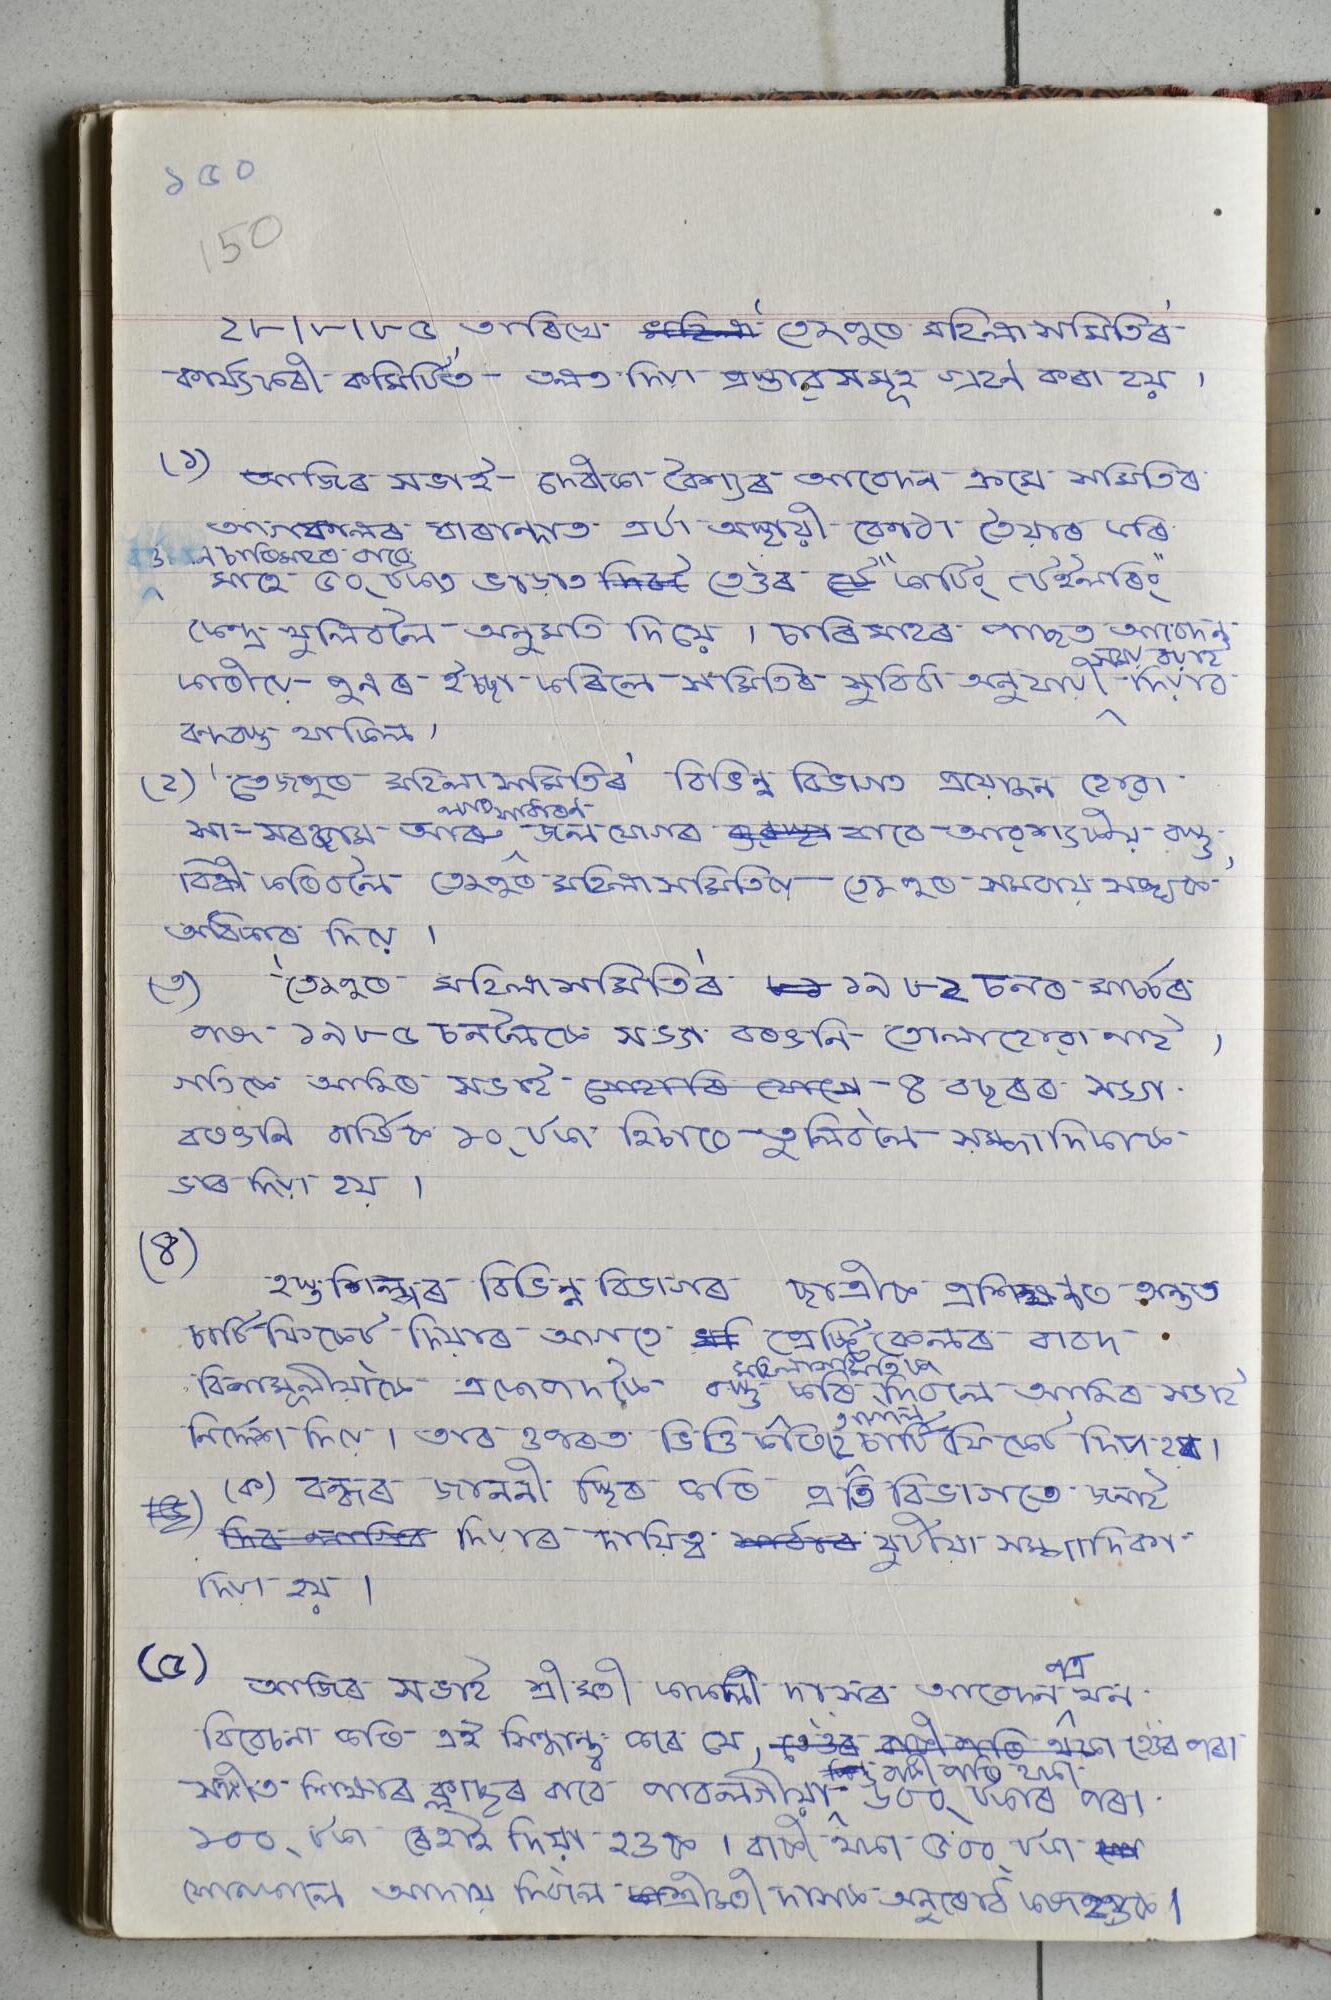 ১৫০
150
২৮।৮।৮৫ তাৰিখে মহিলা 'তেজপুৰ মহিলা সমিতিৰ'
কাৰ্য্যকৰী কমিটিত তলত দিয়া প্ৰস্তাৱ সমূহ গ্ৰহণ কৰা হয় ।
(১) আজিৰ সভাই বৈশ্যৰ আবেদন ক্ৰমে সমিতিৰ
বাৰান্দাত এটা অস্থায়ী কোঠা তৈয়াৰ কৰি
চাৰিমাহৰ বাবে
মাহে ৫০ টকাত ভাড়াত তেওঁৰ "কাটিং টেইলৰিং"
কেন্দ্ৰ খুলিবলৈ অনুমতি দিয়ে । চাৰি মাহৰ পাছত আবেদন
সময় বঢ়াই
কাৰীয়ে পুনৰ ইচ্ছা কৰিলে সমিতিৰ সুবিধা অনুযায়ী দিয়াৰ
বন্দবস্ত থাকিল ।
(২) 'তেজপুৰ মহিলা সমিতিৰ' বিভিন্ন বিভাগত প্ৰয়োজন হোৱা
সা-সৰঞ্জাম আৰু জলযোগৰ বাবে আৱশ্যকীয় বস্তু
বিক্ৰী কৰিবলৈ তেজপুৰ মহিলা সমিতিয়ে তেজপুৰ সমবায় সঙ্ঘক
অধিকাৰ দিয়ে ।
(৩) 'তেজপুৰ মহিলা সমিতিৰ' ১৯৮২ চনৰ মাৰ্চ্চৰ
পৰা ১৯৮৫ চনলৈকে সভ্যা বৰঙনি তোলা হোৱা নাই ,
গতিকে আজিৰ সভাই ৪ বছৰৰ সভ্যা
বৰঙনি বাৰ্ষিক ১০ টকা হিচাবে তুলিবলৈ সম্পাদিকাক
ভাৰ দিয়া হয় ।
(৪)
হস্তশিল্পৰ বিভিন্ন বিভাগৰ ছাত্ৰীক প্ৰশিক্ষণৰ অন্তত
চাৰ্টিফিকেট দিয়াৰ আগতে প্ৰেক্টিকেলৰ বাবদ
মহিলা সমিতিকে
বিনামূলীয়াকৈ এপদকৈ বস্তু কৰি দিবলৈ আজিৰ সভাই
নিৰ্দ্দেশ দিয়ে । তাৰ ওপৰত ভিত্তি কৰিহে চাৰ্টিফিকেট দিয়া হব ।
(ক) বস্তুৰ জাননী স্থিৰ কৰি প্ৰতি বিভাগতে জনাই
দিয়াৰ দায়িত্ব যুটীয়া সম্পাদিকাক
দিয়া হয় ।
(৫)
পত্ৰ
আজিৰ সভাই শ্ৰীমতী দাসৰ আবেদন খন
বিবেচনা কৰি এই সিদ্ধান্ত কৰে যে, তেওঁৰ পৰা
বাকী থকা
সঙ্গীত শিক্ষাৰ ক্লাছৰ বাবে পাবলগীয়া ৬০০ টকাৰ পৰা
১০০ টকা ৰেহাই দিয়া হওক । বাকী থকা ৫০০ টকা
সোনকালে আদায় দিবলৈ শ্ৰীমতী দাসক অনুৰোধ কৰা হওক ।